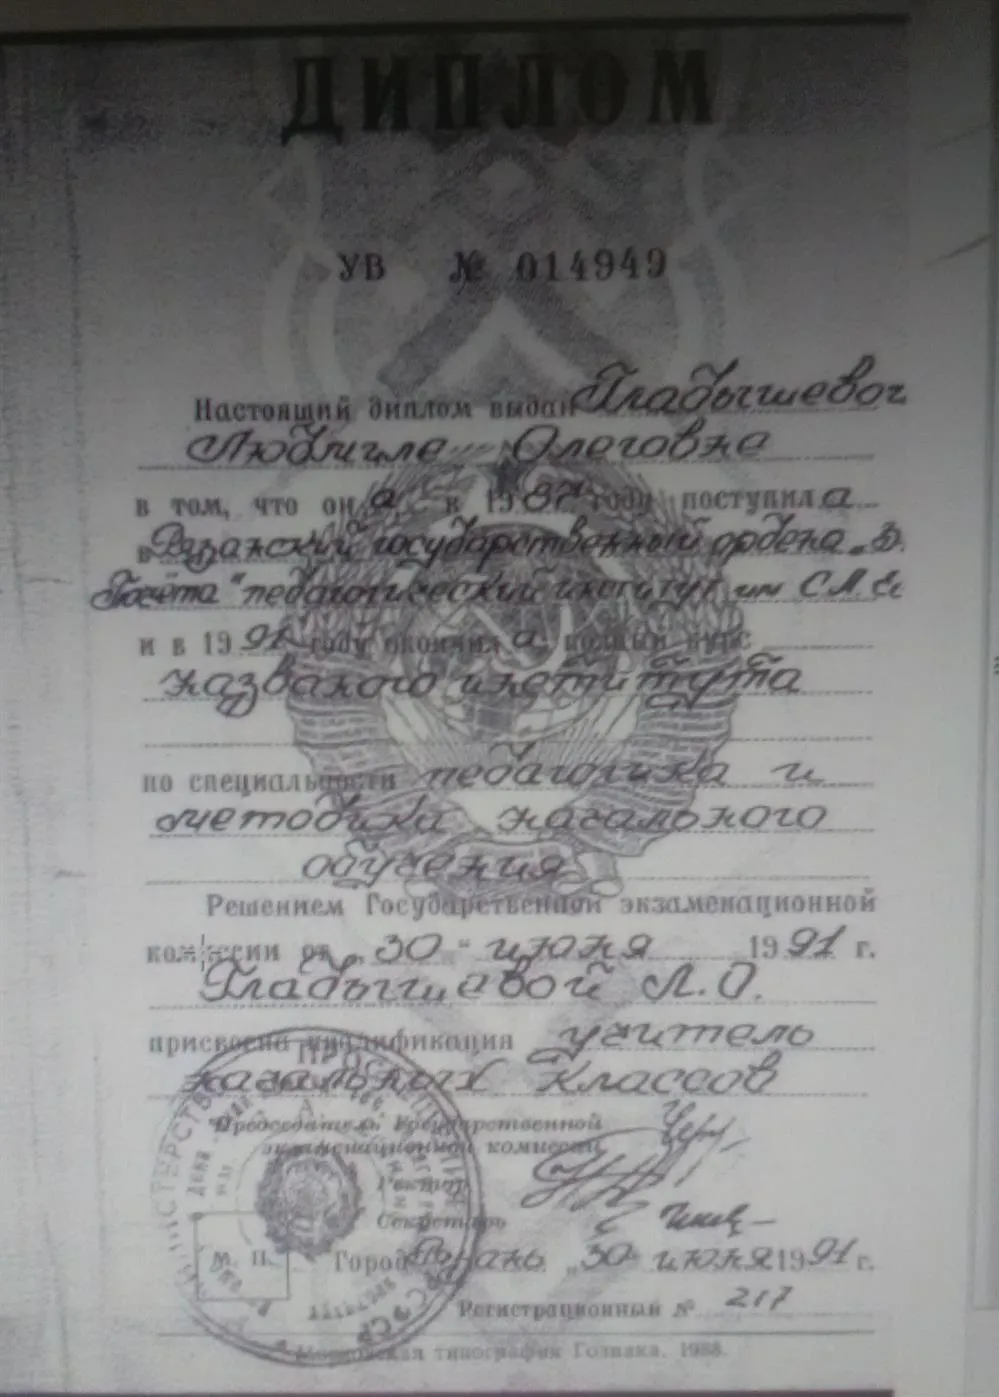 ДИПЛОМ
УВ № 014949
Настоящий диплом выдан Гладышевой
Людмиле Олеговне
в том, что она в 1987 году поступила
в Рязанский государственный ордена „З.
Почёта" педагогический институт им С.А. Ес
и в 1991 году окончила полный курс
названого института
по специальности педагогика и
методика начального
обучения
Решением Государственной экзаменационной
комиссии от „30" июня 1991 г.
Гладышевой Л.О.
присвоена квалификация учитель
начальных классов
Председатель Государственной
экзаменационной комиссии
Ректор
Секретарь
М. П.
Город Рязань „30 июня 1991 г.
Регистрационный № 217
Московская типография Гознака. 1988.